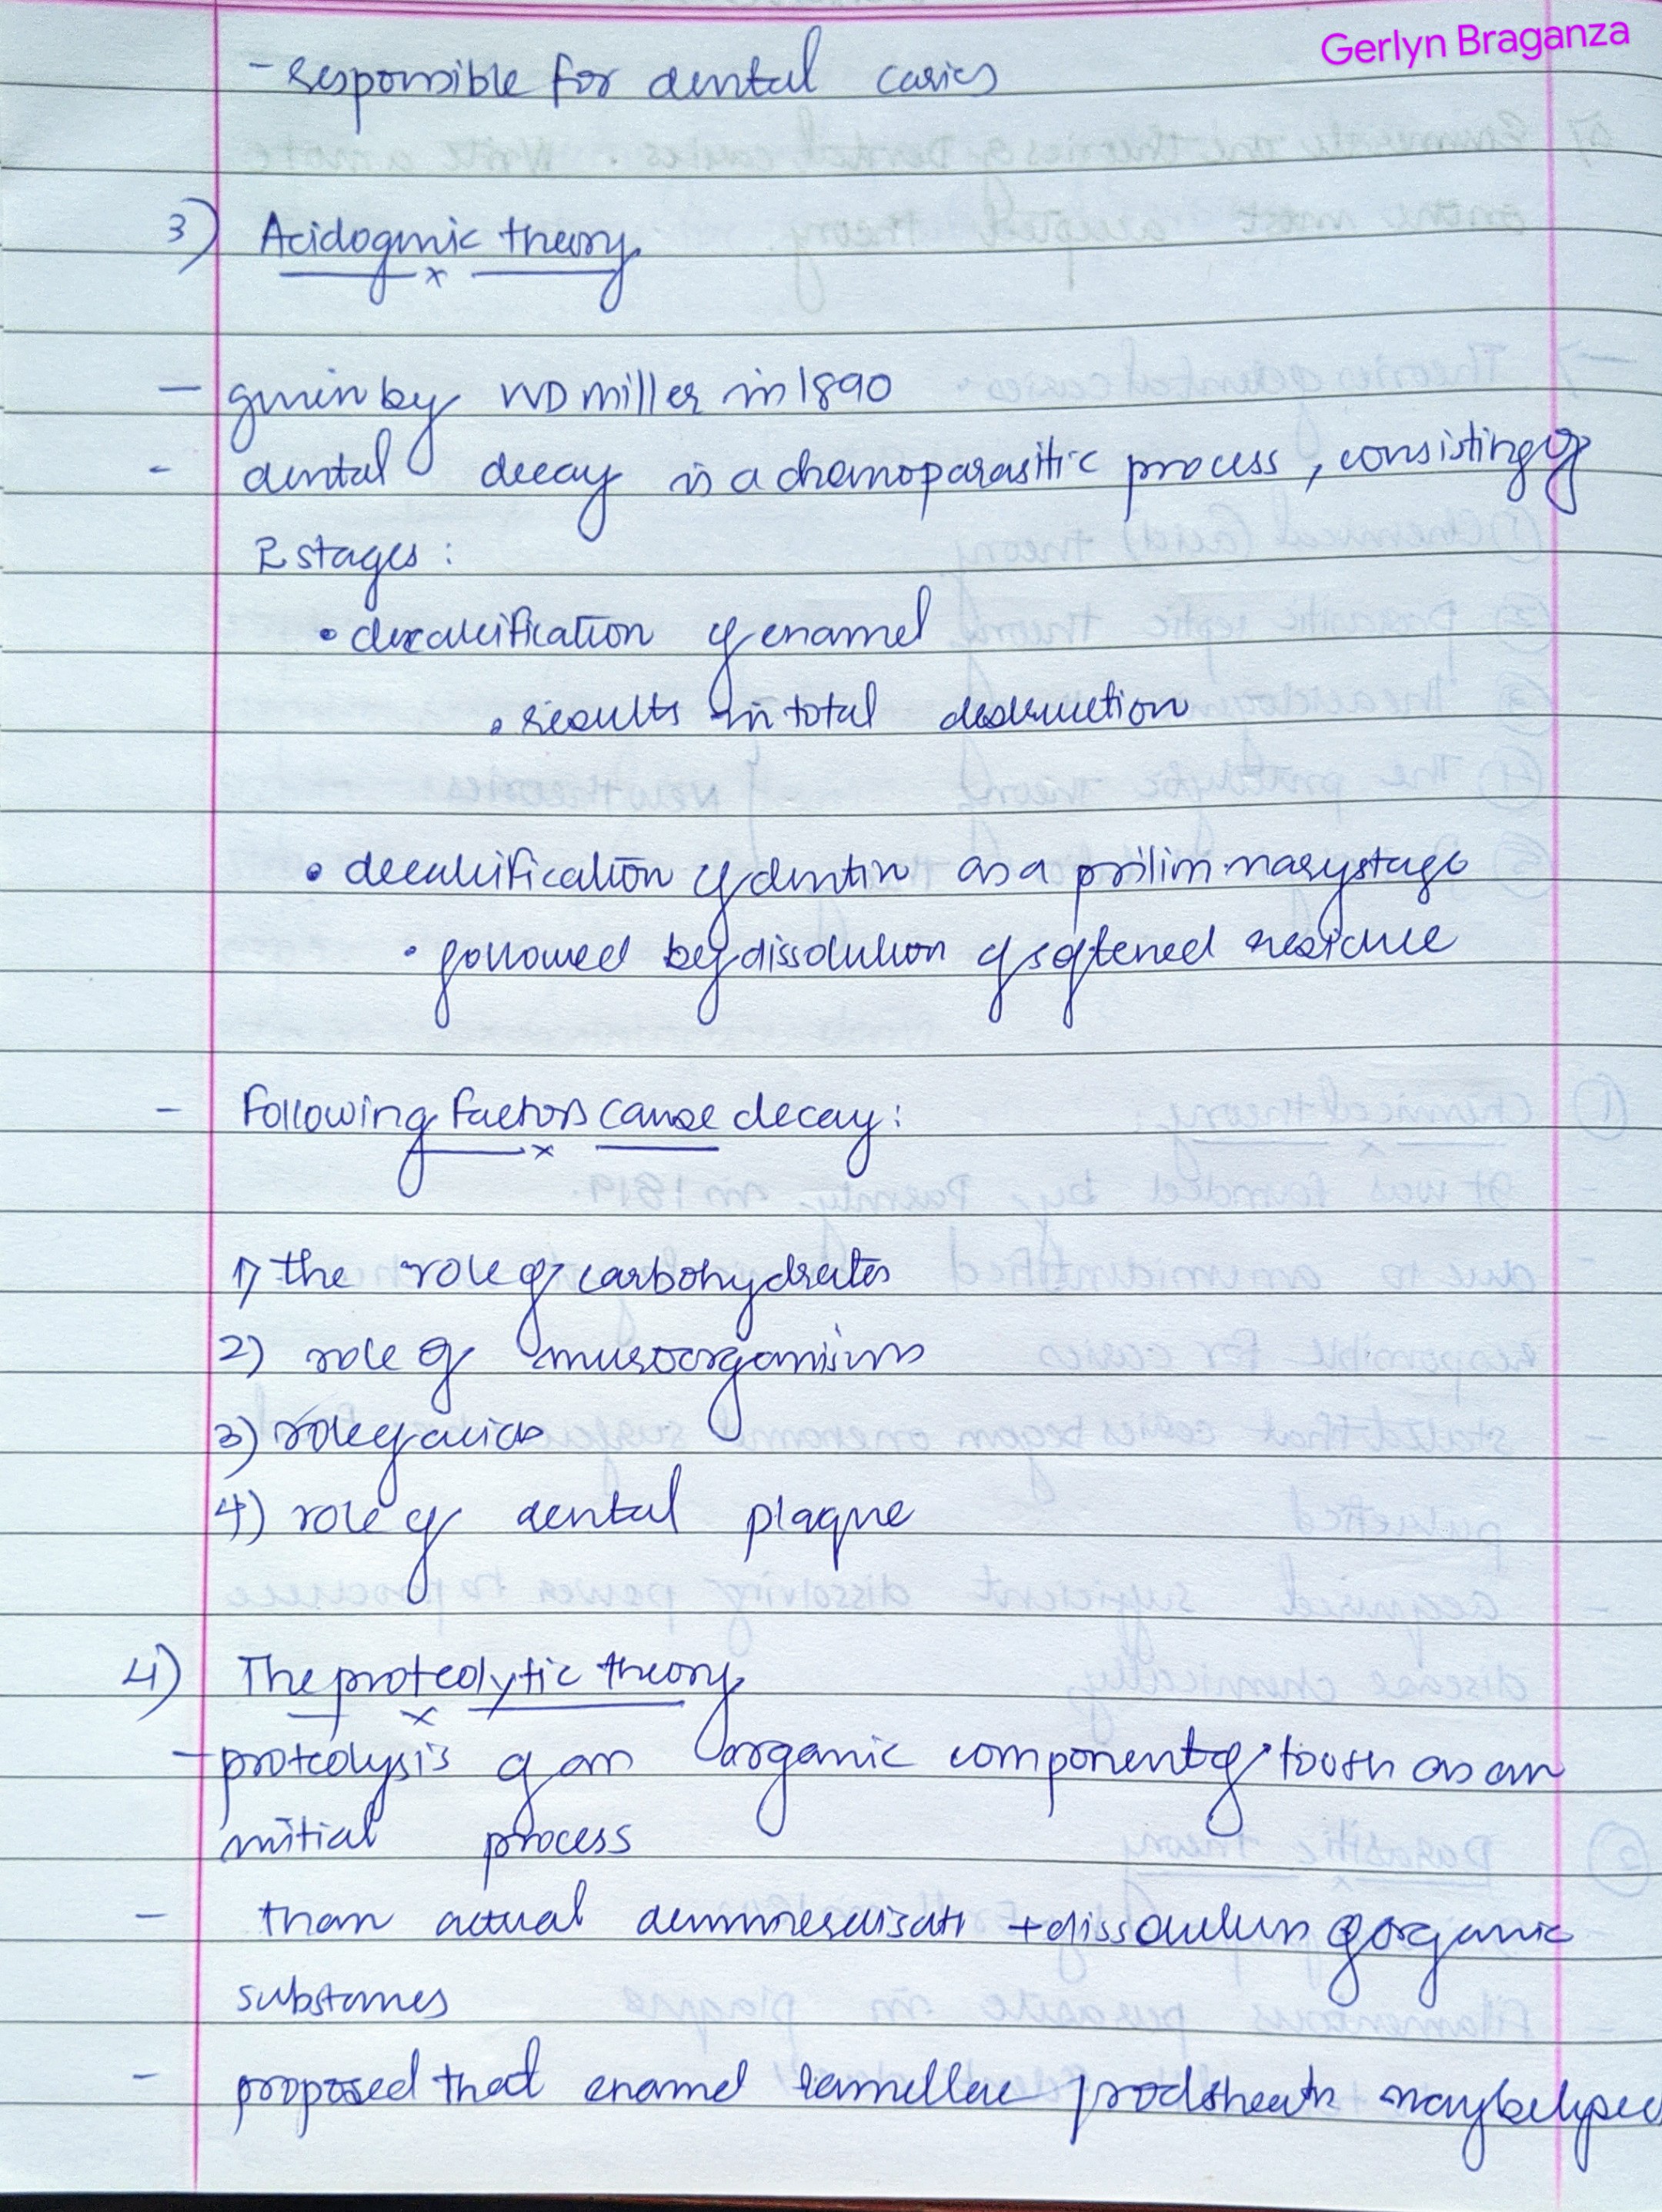 Gerlyn Braganza
- responsible for dental caries
3) Acidogenic theory
- given by WD miller in 1890
- dental decay is a chemoparasitic process, consisting of
2 stages :
• decalcification of enamel
• results in total destruction
• decalcification of dentin as a prilimnary stage
• followed by dissolution of softened residue
- Following factors cause decay :
1) the role of carbohydrates
2) role of microorganisms
3) role of acids
4) role of dental plaque
4) The proteolytic theory
- proteolysis of an organic component of tooth as an
initial process
- than actual + dissolution of organic
substances
- proposed that enamel lamellae / rod sheath may be